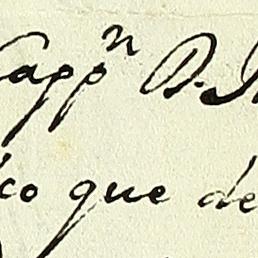 Cappⁿ D. J
co que de